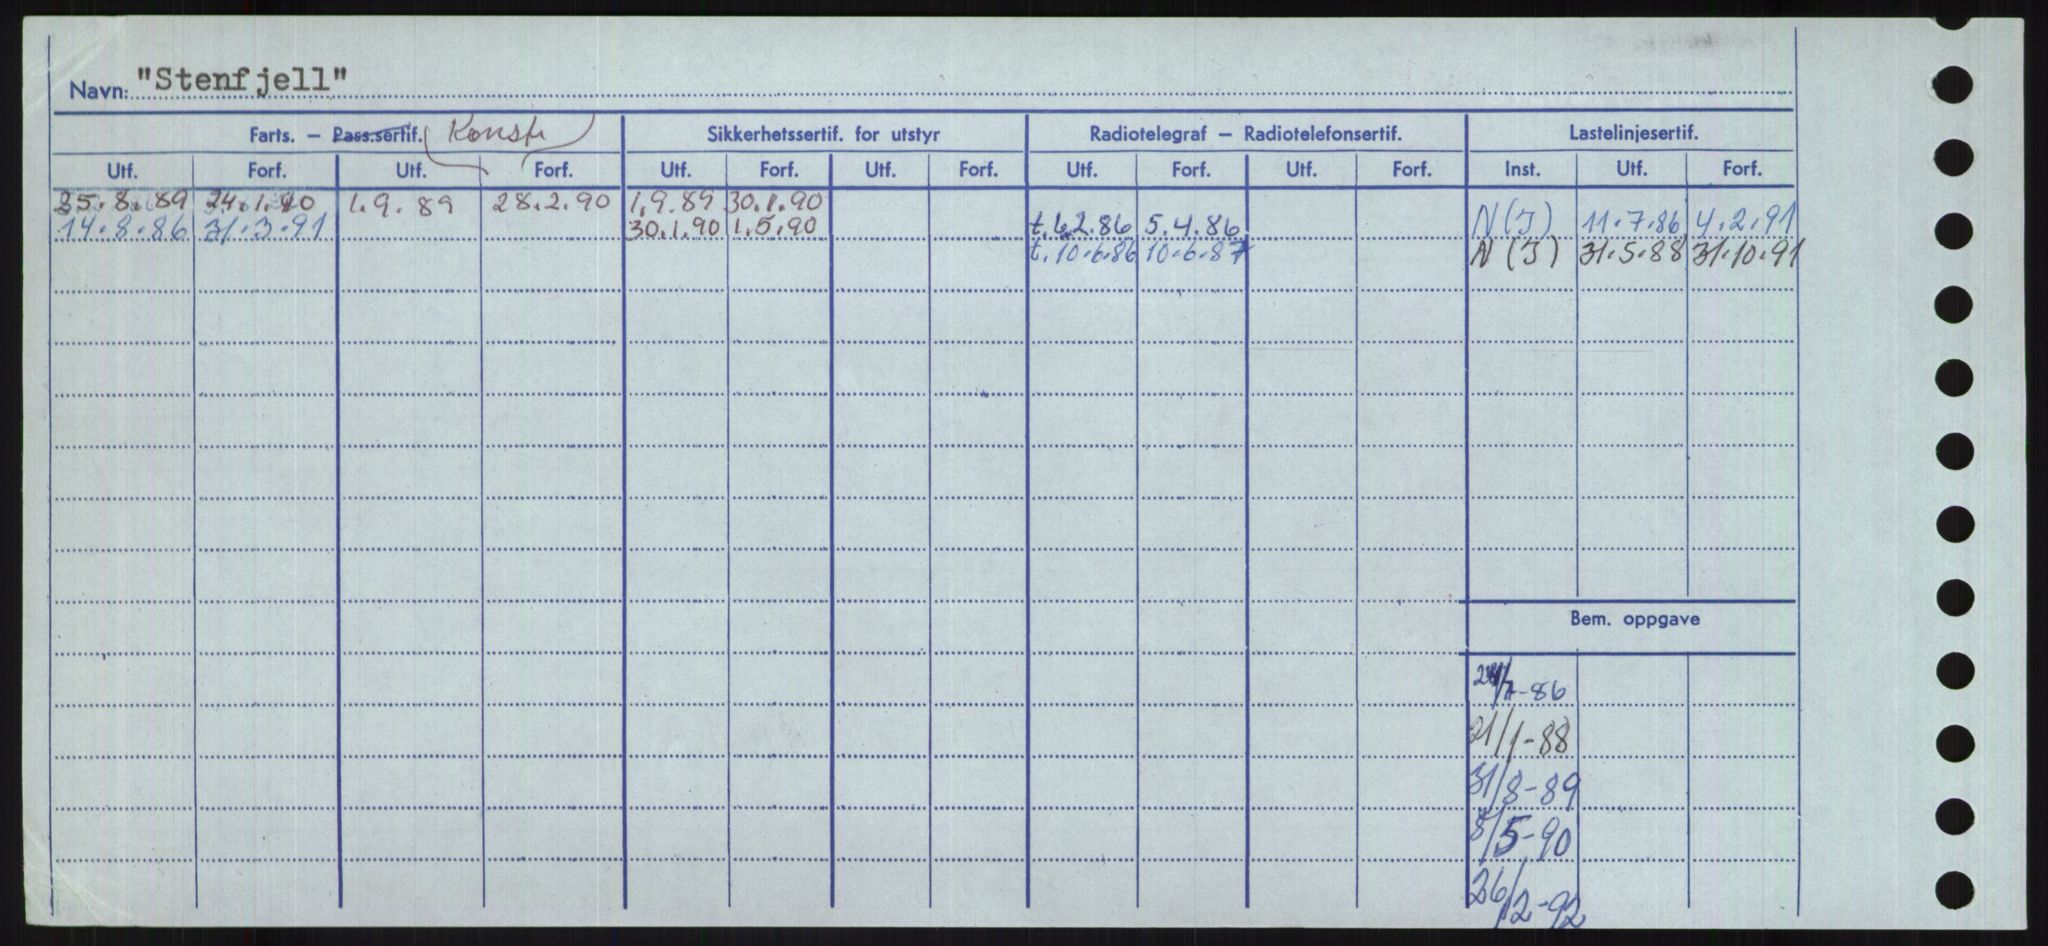 Navn: "Stenfjell"
Farts. – Pass.sertif. Konstr Sikkerhetssertif. for utstyr Radiotelegraf – Radiotelefonsertif. Lastelinjesertif.
Utf. Forf. Utf. Forf. Utf. Forf. Utf. Forf. Utf. Forf. Utf. Forf. Inst. Utf. Forf.
25.8.89 24.1.90 1.9.89 28.2.90 1.9.89 30.1.90
14.8.86 31.3.91 30.1.90 1.5.90 t.6.2.86 5.4.86 N(I) 11.7.86 4.2.91
t.10.6.86 10.6.87 N(I) 31.5.88 31.10.91
Bem. oppgave
/7-86
21/1-88
31/8-89
8/5-90
26/2-92